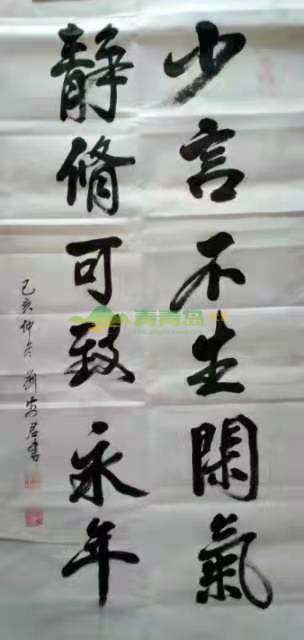 少言不生閑氣
靜脩可致永年
己亥仲冬 劉安君書
青青岛